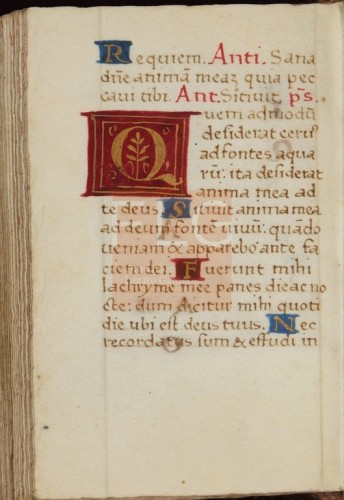 Requiem. Anti. Sana
dñe animã meaʒ quia pec
cavi tibi. Ant. Sitivit. ps.
Quem admodũ
desiderat cervꝰ
ad fontes aqua
rũ: ita desiderat
anima mea ad
te deus. Sitivit anima mea
ad deum fontẽ vivũ: quãdo
veniam & apparebo ante fa
ciem dei. Fuerunt mihi
lachryme mee panes die ac no
cte: dum dicitur mihi quoti
die ubi est deus tuus. Nec
recordatus sum & effudi in